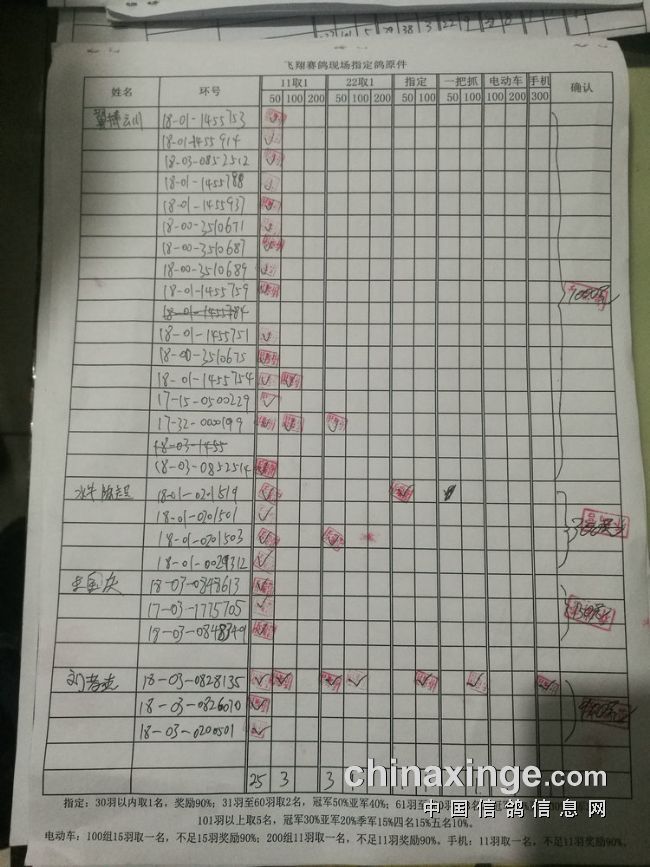 飞翔赛鸽现场指定鸽原件
姓名 环号 11取1 22取1 指定 一把抓 电动车 手机 确认
50 100 200 50 100 200 50 100 50 100 100 200 300
18-01-1455753
18-01-1455914
18-03-0852512
18-01-1455788
18-01-1455937
18-00-3510671
18-00-3510687
18-00-3510689
18-01-1455759
18-01-1455784
18-01-1455751
18-00-3510675
18-01-1455754
17-15-0500229
17-32-0000199
18-03-1455
18-03-0852514
18-01-0201519
18-01-0201501
18-01-0201503
18-01-0029312
18-03-0848613
17-03-1775705
18-03-0848349
18-03-0828135
18-03-0826070
18-03-0200501
25 3 3
指定：30羽以内取1名，奖励90%；31羽至60羽取2名，冠军50%亚军40%；61羽至
101羽以上取5名，冠军30%亚军20%季军15%四名15%五名10%。
电动车：100组15羽取一名，不足15羽奖励90%；200组11羽取一名，不足11羽奖励90%。手机：11羽取一名，不足11羽奖励90%。
chinaxinge.com
中国信鸽信息网